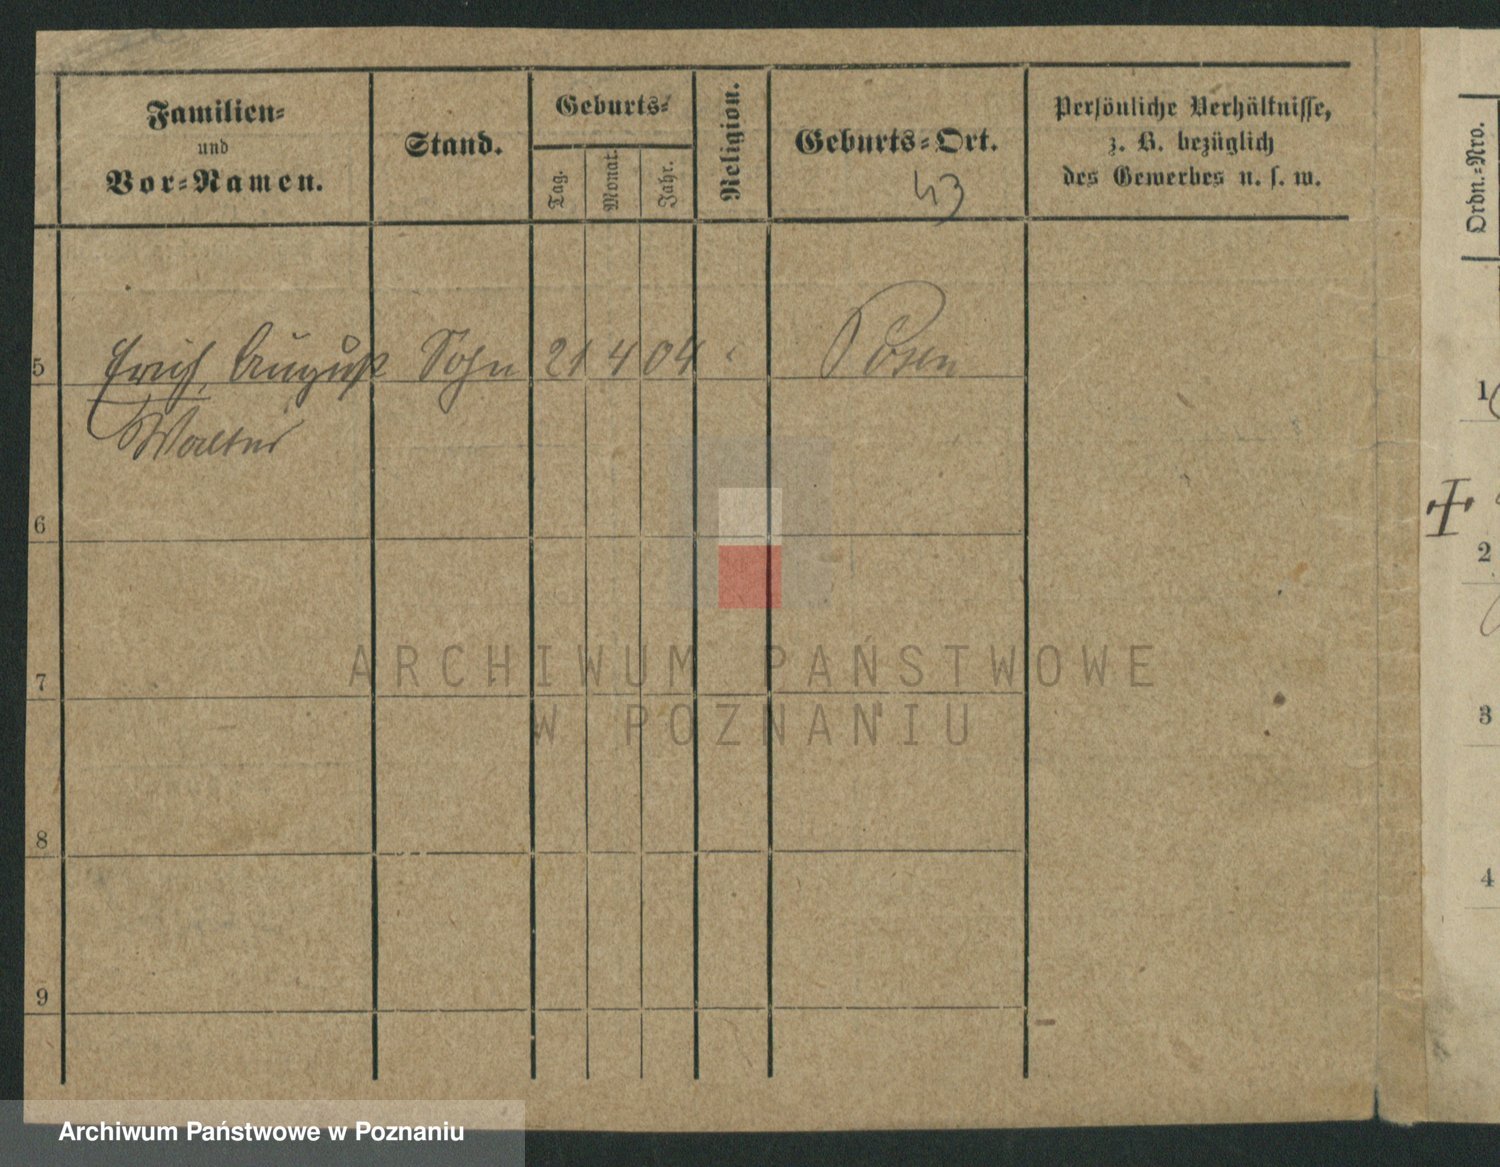 Familien-
und
Vor-Namen.
Stand.
Geburts-
Tag.
Monat.
Jahr.
Religion.
Geburts-Ort.
43
Persönliche Verhältnisse,
z. B. bezüglich
des Gewerbes u. s. w.
Ordn.-Nro.
5 Erich August Sohn 21 4 04 Posen
Walter
6
7
8
9
1
2
3
4
ARCHIWUM PAŃSTWOWE
W POZNANIU
Archiwum Państwowe w Poznaniu